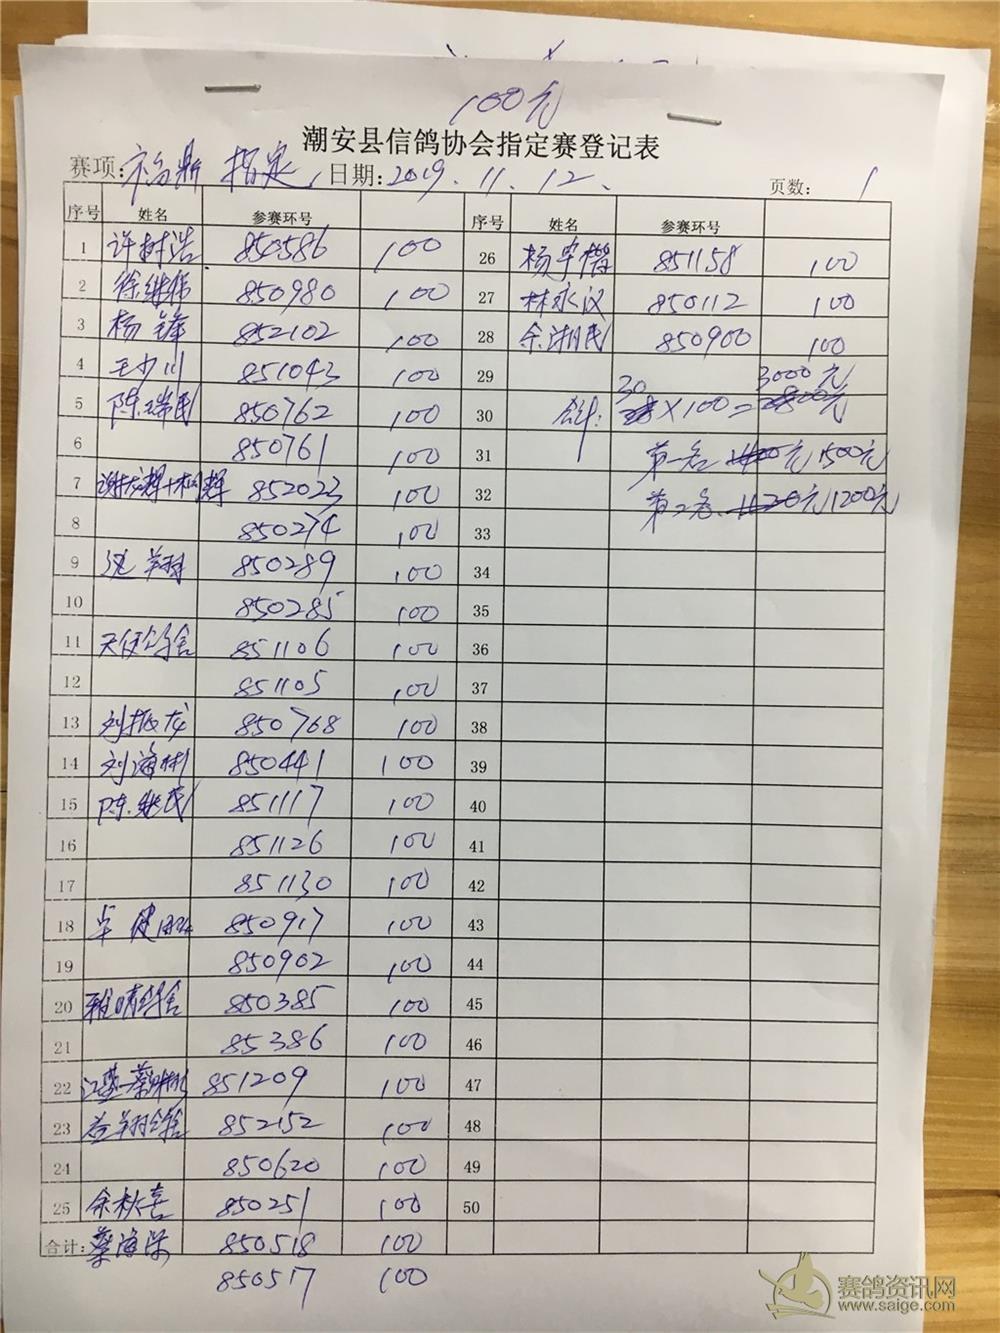 100元
潮安县信鸽协会指定赛登记表
赛项: 福鼎 指定 日期: 2019.11.12. 页数: 1
序号 姓名 参赛环号 序号 姓名 参赛环号
1 许树浩 850586 100 26 杨宇 851158 100
2 徐继伟 850980 100 27 林永汉 850112 100
3 杨锋 852102 100 28 余湘民 850900 100
4 王少川 851043 100 29 30 3000元
5 陈瑞民 850762 100 30 合计: 28×100=2800元
6 850761 100 31 第一名 元1500元
7 谢龙辉 852023 100 32 第2名 1120元1200元
8 850274 100 33
9 沈翔 850289 100 34
10 850285 100 35
11 天使鸽舍 851106 100 36
12 851105 100 37
13 刘振龙 850768 100 38
14 刘海彬 850441 100 39
15 陈继民 851117 100 40
16 851126 100 41
17 851130 100 42
18 卓健 850917 100 43
19 850902 100 44
20 雅晴鸽舍 850385 100 45
21 85386 100 46
22 851209 100 47
23 益翔鸽舍 852152 100 48
24 850620 100 49
25 余秋喜 850251 100 50
合计: 蔡海深 850518 100
850517 100
赛鸽资讯网
www.saige.com